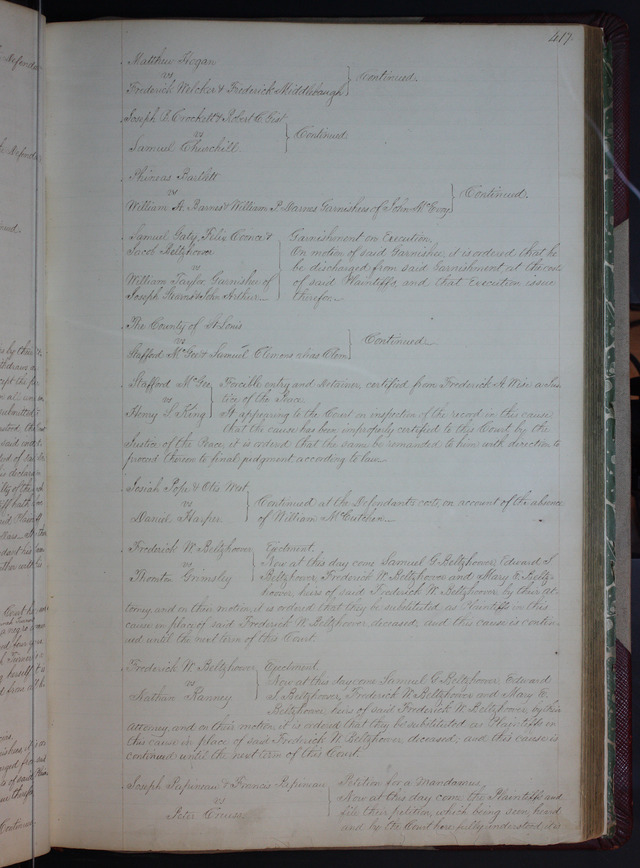 417
Matthew Hogan
vs
Frederick Welcker & Frederick Middlebaugh } Continued.
Joseph G. Crockett & Robert C. Gist
vs
Samuel Churchill } Continued
Phineas Bartlett
vs
William A. Barnes & William P. Garnishees of John Continued.
Samuel Gaty, Felix Coonce & Garnishment on Execution.
Jacob Beltzhoover On motion of said Garnishee, it is ordered that he
vs be discharged from said Garnishment at the cost
William Taylor, Garnishee of of said Plaintiffs, and that Execution issue
Joseph Stearns & John Arthur therefor
The County of St. Louis
vs
Stafford McGee & Samuel Clemens alias Clem } Continued
Stafford McGee Forcible entry and detainer, certified from Frederick A. Wise a Jus-
vs tice of the Peace.
Henry S. King It appearing to the Court on inspection of the record in this cause
that the cause has been improperly certified to this Court by the
Justice of the Peace, it is ordered that the same be remanded to him with direction to
proceed therein to final judgment according to law.
Josiah Pope & Otis West
vs Continued at the Defendant's costs, on account of the absence
Daniel Harper of William McCutchen
Frederick W. Beltzhoover Ejectment.
vs Now at this day come Samuel G. Beltzhoover, Edward S.
Thornton Grimsley Beltzhoover, Frederick W. Beltzhoover and Mary E. Beltz-
hoover, heirs of said Frederick W. Beltzhoover by their at-
torney, and on their motion, it is ordered that they be substituted as Plaintiffs in this
cause in place of said Frederick W. Beltzhoover, deceased, and this cause is contin-
ued until the next term of this Court.
Frederick W. Beltzhoover Ejectment.
vs Now at this day come Samuel G. Beltzhoover, Edward
Nathan Ranney S. Beltzhoover, Frederick W. Beltzhoover and Mary E.
Beltzhoover, heirs of said Frederick W. Beltzhoover, by their
attorney, and on their motion, it is ordered that they be substituted as Plaintiffs in
this cause in place of said Frederick W. Beltzhoover, deceased, and this cause is
continued until the next term of this Court.
Joseph Papineau & Francis Papineau Petition for a Mandamus.
vs Now at this day come the Plaintiffs and
Peter file their petition, which being seen, heard
and by the Court here fully understood, it is